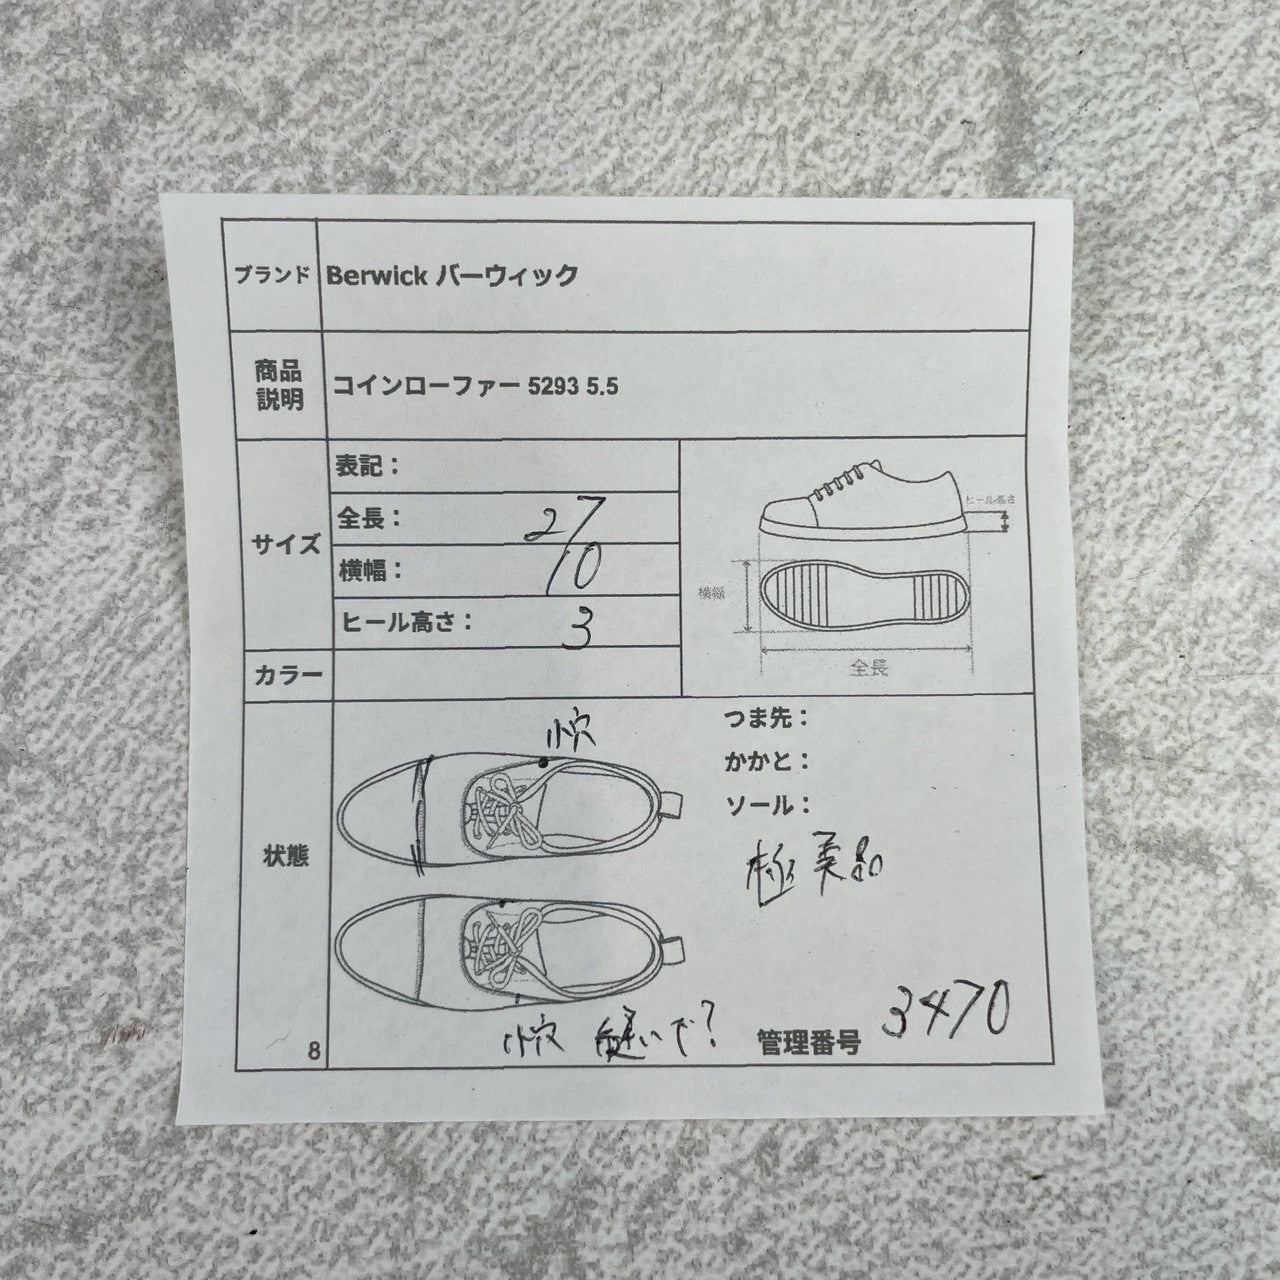 ブランド Berwick バーウィック
商品説明 コインローファー 5293 5.5
サイズ
表記：
全長： 27
横幅： 10
ヒール高さ： 3
ヒール高さ
横幅
全長
カラー
状態
小穴
つま先：
かかと：
ソール：
極美品
小穴 縫いで？
管理番号 3470
8